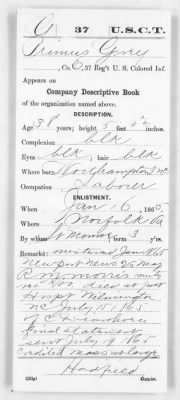 G | 37 | U.S.C.T.
Primus Grey
, Co. C, 37 Reg't U. S. Colored Inf.
Appears on
Company Descriptive Book
of the organization named above.
DESCRIPTION.
Age 38 years; height 5 feet 3½ inches.
Complexion blk
Eyes blk; hair blk
Where born Northampton NC
Occupation Laborer
ENLISTMENT.
When Jan 16, 1865.
Where Norfolk Va
By whom; term 3 y'rs.
Remarks: mustered Jan 1865
Newport News
R. M. Morris
no 400. died at post
Hospt Wilmington
NC July 15 1865
of
final statement
sent July 19 1865
Credited Mass
(383g) Copyist.